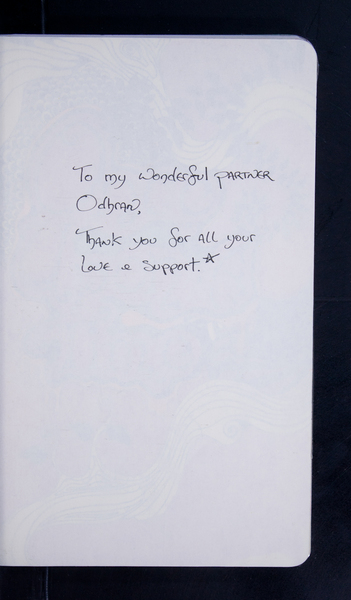 To my wonderful partner
Odhran,
Thank you for all your
love & support.☆